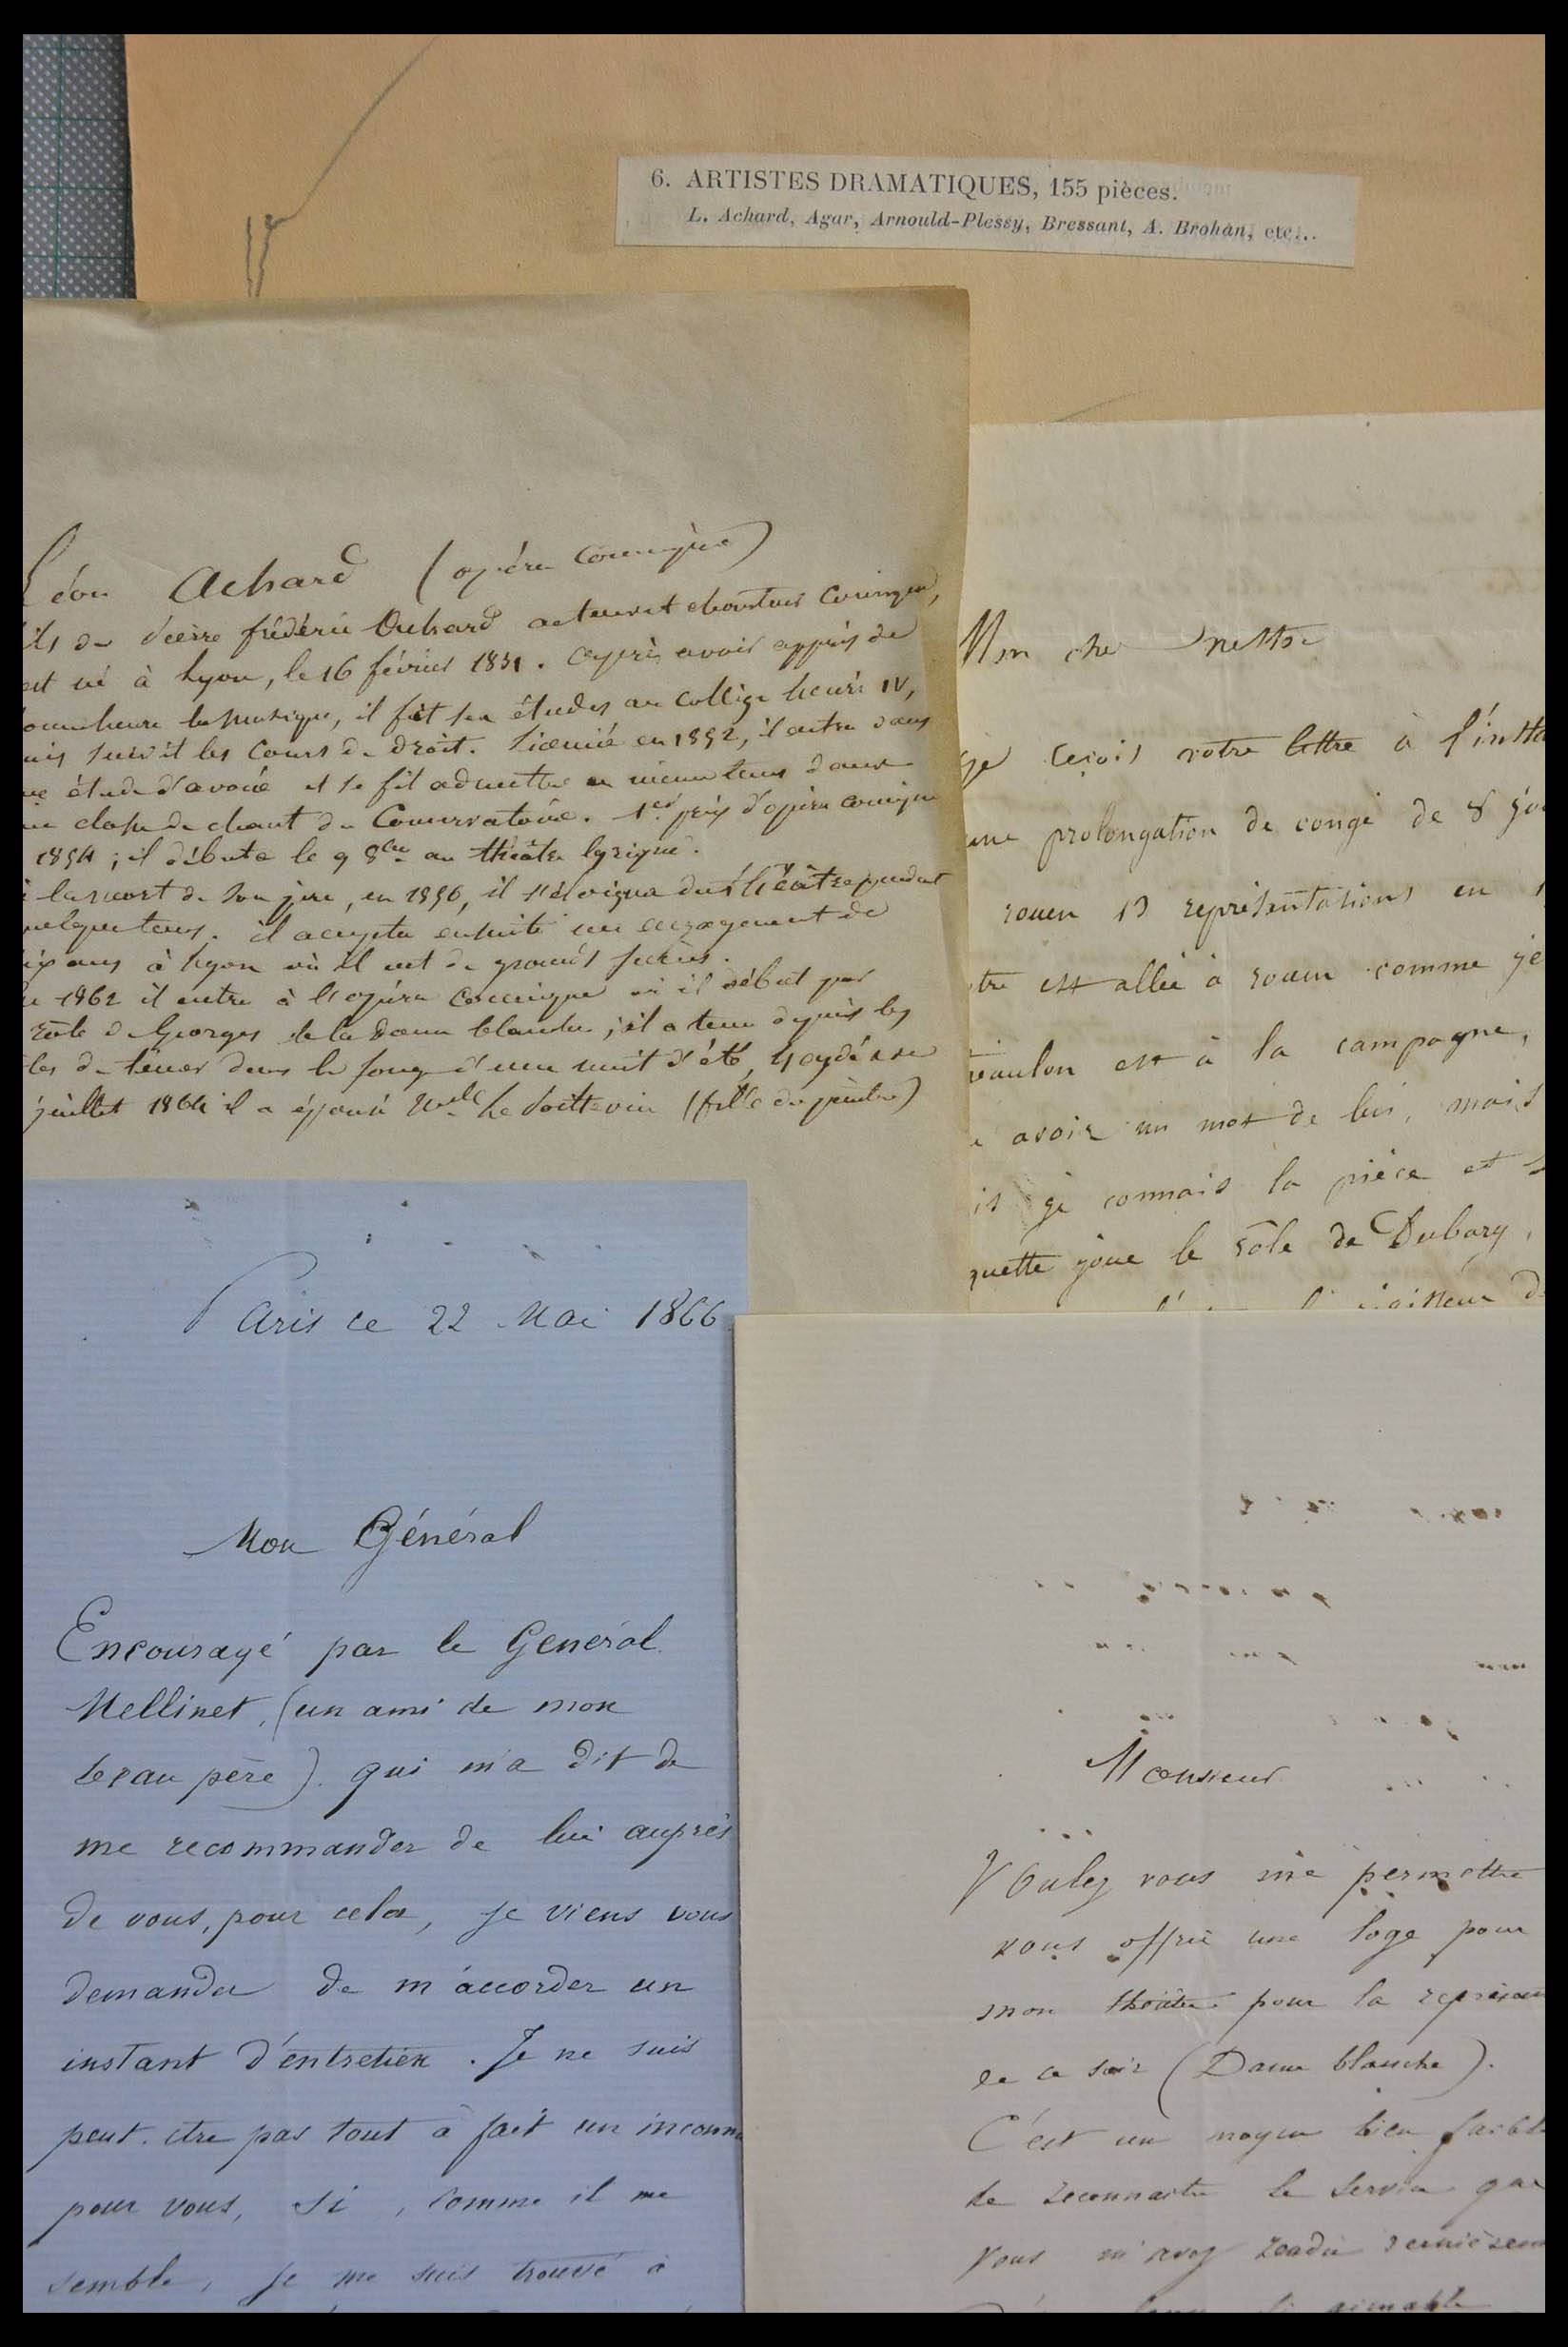 6. ARTISTES DRAMATIQUES, 155 pièces.
L. Achard, Agar, Arnould-Plessy, Bressant, A. Brohan, etc...
Léon Achard (opéra comique)
ils de Pierre frédéric Achard acteur et chanteur comique,
est né à Lyon, le 16 février 1831. après avoir appris de
bonne heure la musique, il fit ses études au collège henri IV,
uis suivit les cours de droit. licencié en 1852, il entra dans
ne étude d'avoué et se fit admettre en même tems dans
une classe de chant du Conservatoire. 1er prix d'opéra comique
1854 ; il débuta le 9 8bre au théâtre lyrique.
à la mort de son père, en 1856, il s'éloigna du théâtre pendant
quelque tems. il accepta ensuite un engagement de
ans à Lyon où il eut de grands succès.
1862 il entre à l'opéra comique où il début par
rôle de Georges de la dame blanche ; il a tenu depuis les
les de ténor dans le songe d'une nuit d'été, haydée &&
juillet 1864 il a épousé Melle Le Poittevin (fille du peintre)
Mon cher
je reçois votre lettre à l'insta
une prolongation de congé de 8 jou
rouen 13 représentations en
tre est allée à rouen comme je
est à la campagne,
avoir un mot de lui, mais
is je connais la pièce et
quette joue le rôle de Dubary,
Paris ce 22 Mai 1866
Mon Général
Encouragé par le Général
Mellinet, (un ami de mon
beau père) qui m'a dit de
me recommander de lui auprès
de vous, pour cela, je viens vous
demander de m'accorder un
instant d'entretien. Je ne suis
peut.être pas tout à fait un inconnu
pour vous, si, comme il me
semble, je me suis trouvé à
Monsieur
Voulez vous me permettre
vous offrir une loge pour
mon théâtre pour la représen
de ce soir (Dame blanche).
C'est un moyen bien faible
de reconnaitre le service que
vous m'avez rendu dernièrem
aimable